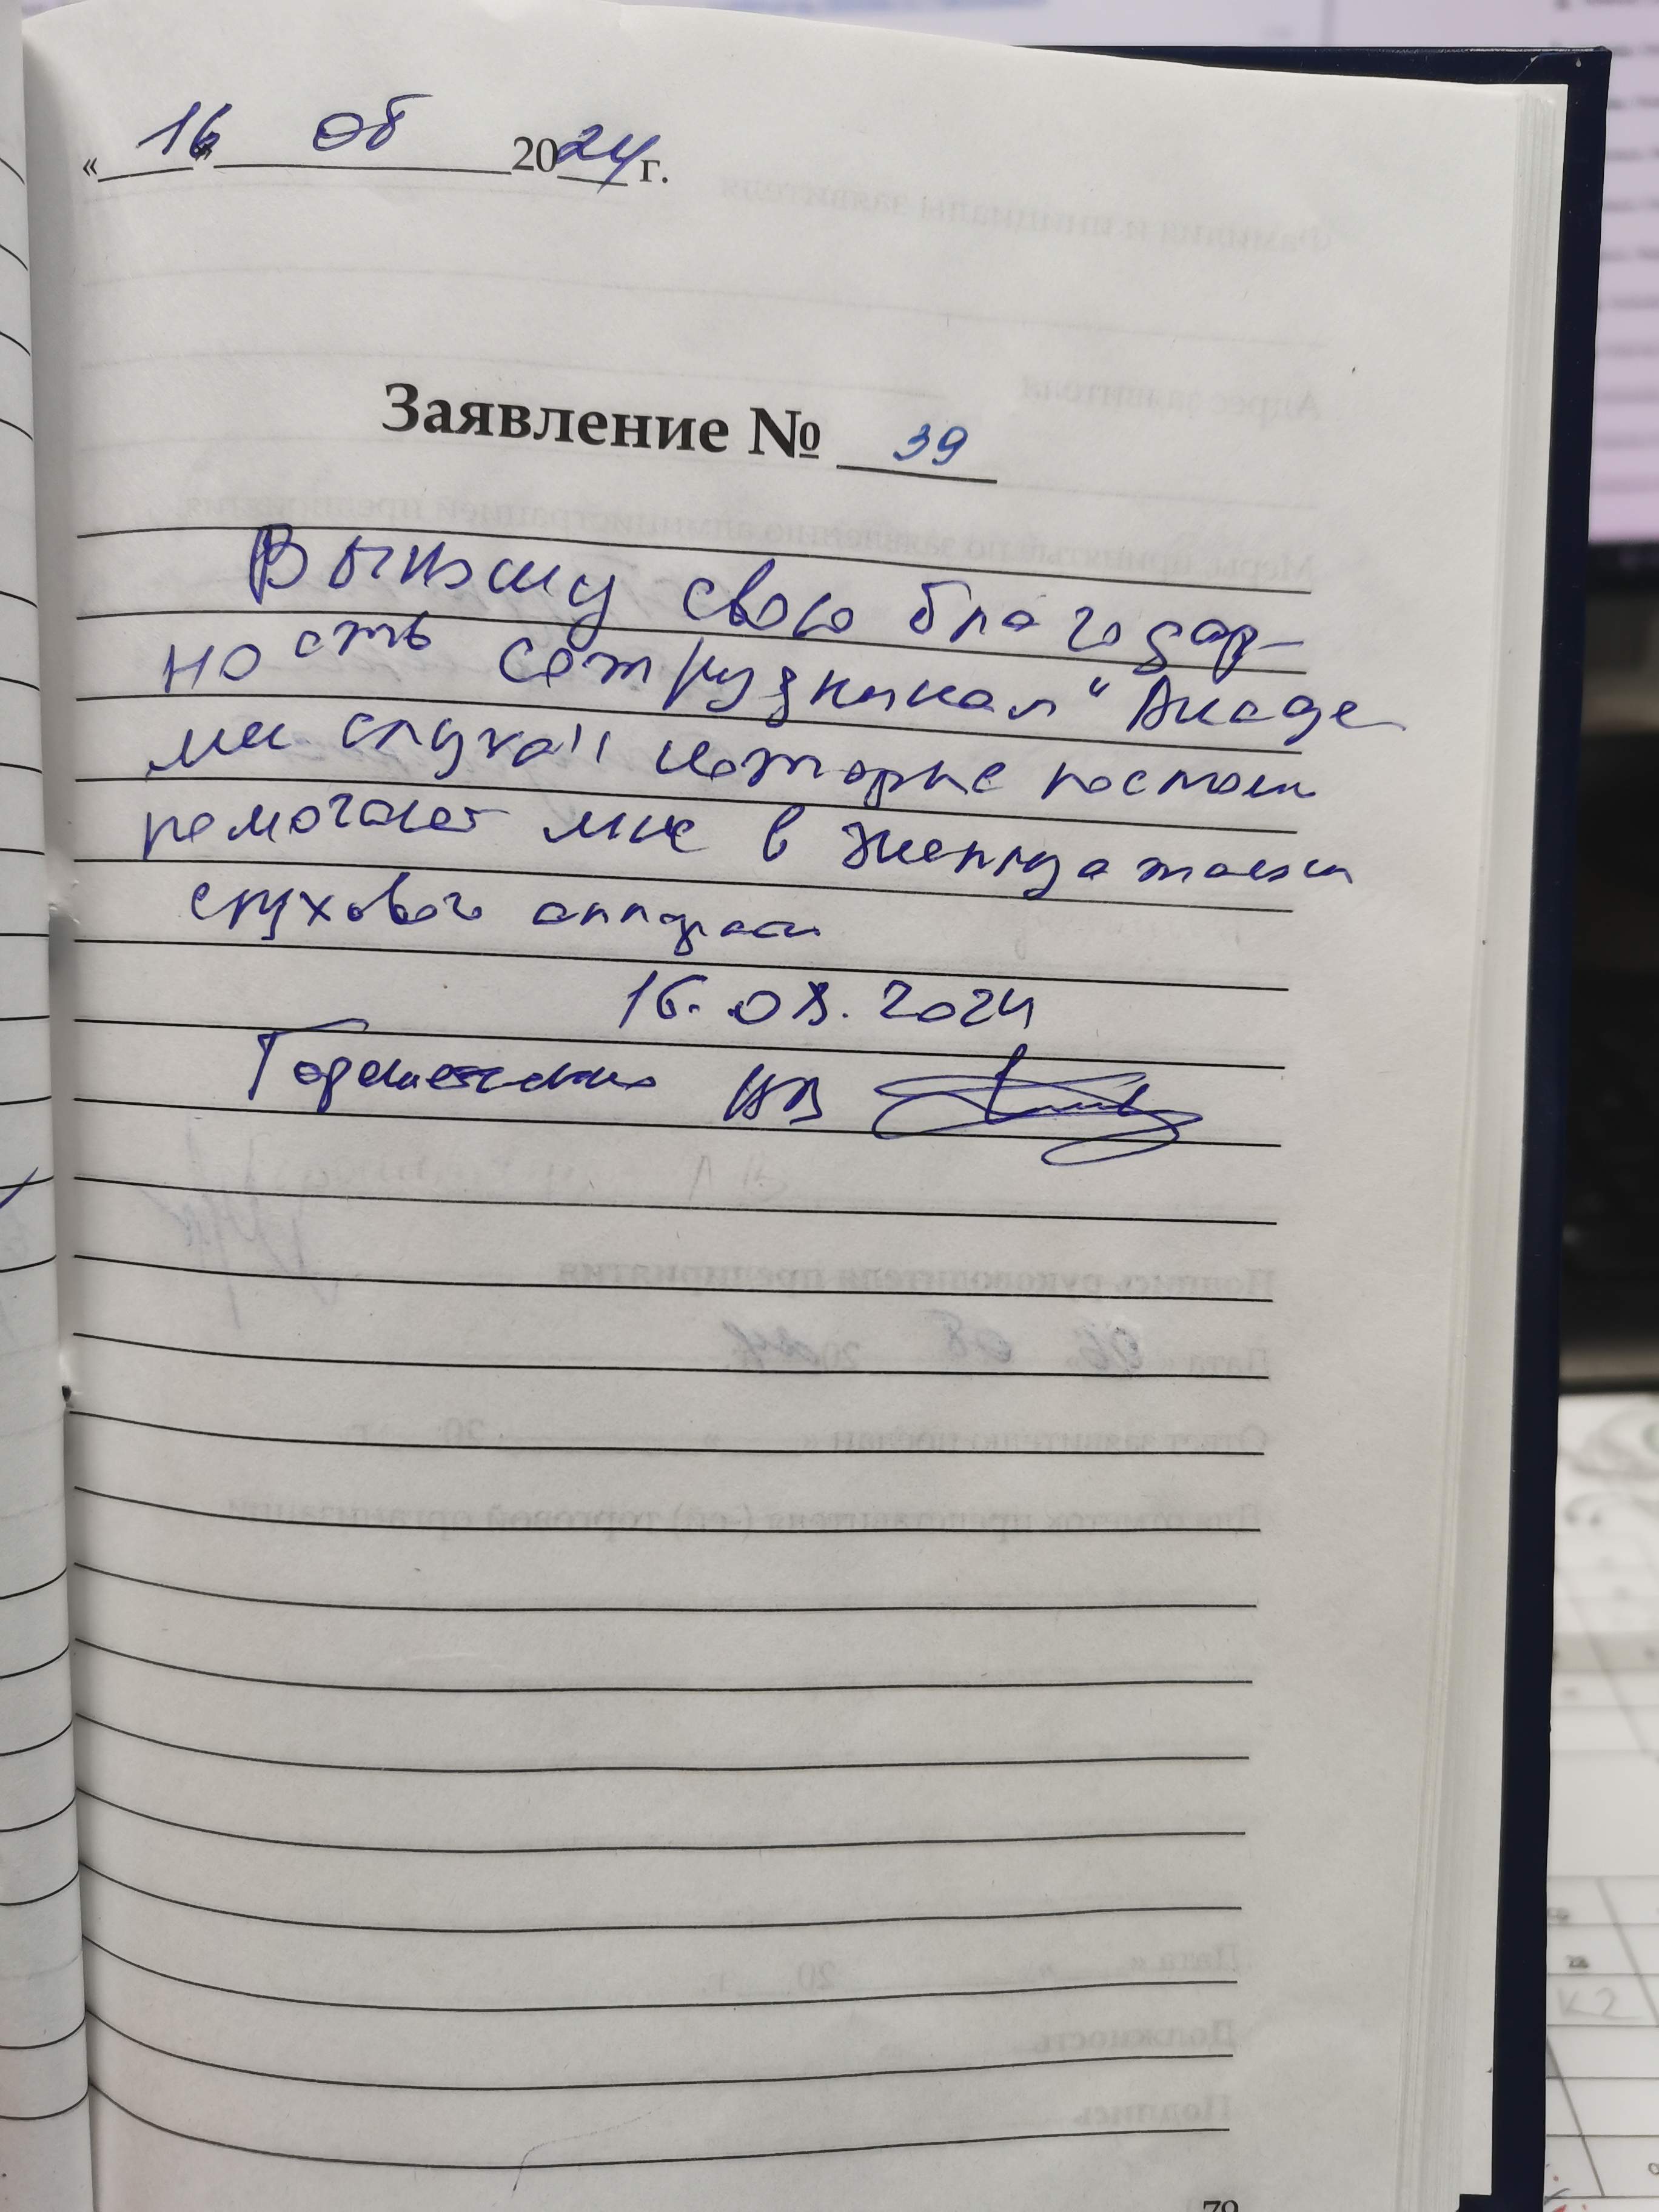 « 16 » 08 2024 г.
Заявление № 39
Выношу свою благодар-
ность сотрудникам "Академ
ии слуха" которые постоян
помогают мне в эксплуатации
слухового аппарата
16.08.2024
НВ
79